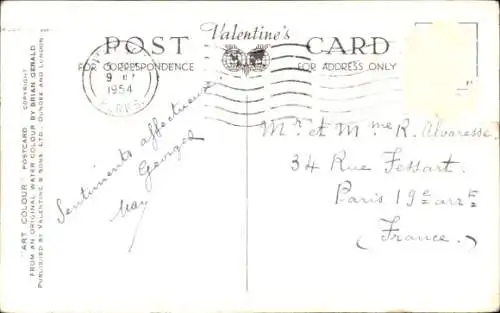 Valentine's
POST CARD
FOR CORRESPONDENCE
FOR ADDRESS ONLY
9
1954
BERKS.
"ART COLOUR" POSTCARD. COPYRIGHT
FROM AN ORIGINAL WATER COLOUR BY BRIAN GERALD
PUBLISHED BY VALENTINE & SONS, LTD., DUNDEE AND LONDON
Sentiments affectueux
Georges
May
Mr et Mme R. Alvaresse
34 Rue Fessart.
Paris 19e arrt
(France.)